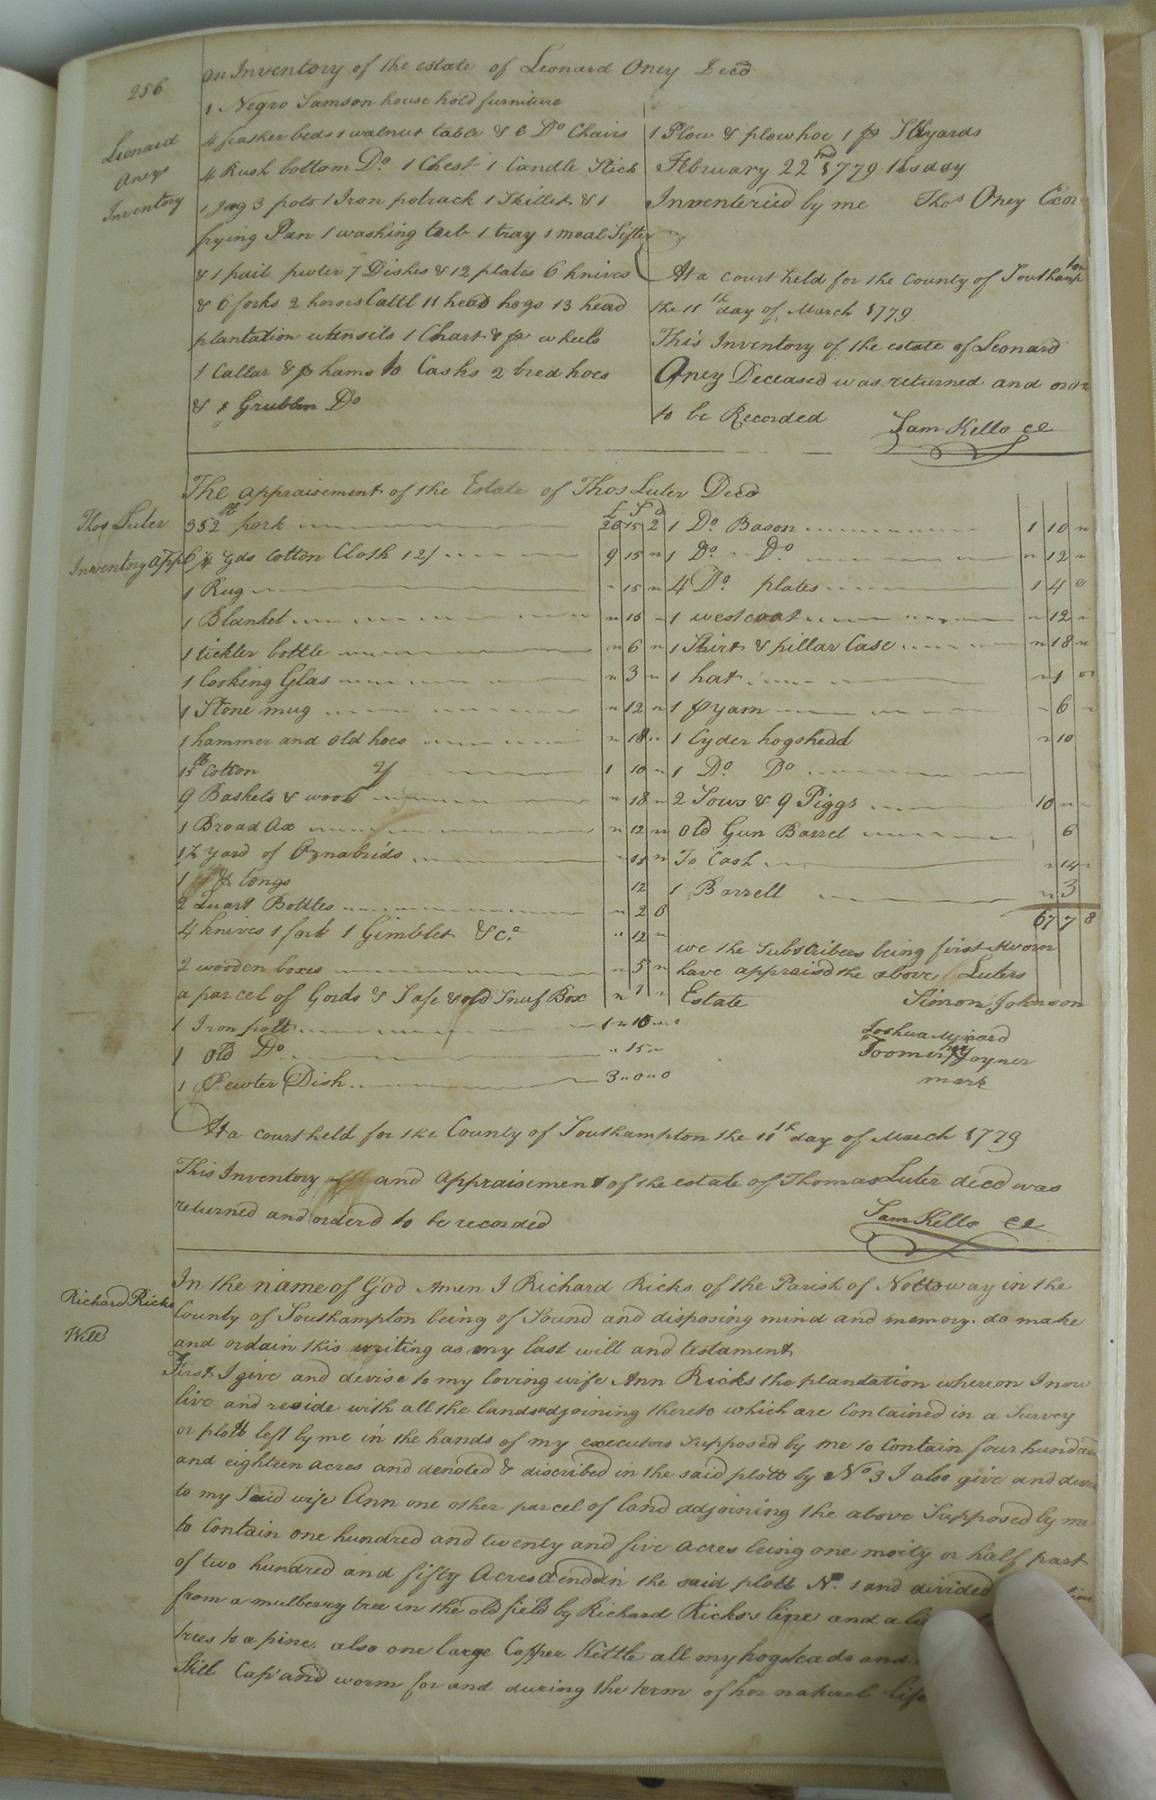 256
An Inventory of the estate of Leonard Oney Decd
Leonard
Oneys
Inventory
1 Negro Samson house hold furniture
4 feather beds 1 walnut table & 6 Do Chairs
4 Rush bottom Do. 1 Chest 1 Candle Stick
1 Jug 3 pots 1 Iron potrack 1 Skillet & 1
frying Pan 1 washing tub 1 tray 1 meal Sifter
& 1 pail pewter 7 Dishes & 12 plates 6 knives
& 6 forks 2 horses Cattl 11 head hogs 13 head
plantation utensils 1 Chart & pr wheels
1 Collar & pr hams 10 Casks 2 bred hoes
& Grubbin Do
1 Plow & plow hoe 1 pr Stilyards
February 22nd 1779
Inventeried by me Thos Oney Exor
At a court held for the County of Southampton
the 11th day of March 1779
This Inventory of the estate of Leonard
Oney Deceased was returned and order
to be Recorded
Sam Kello CC
The appraisement of the Estate of Thos Luter Decd
Thos Luter
Inventory App
£ S D
352 lb pork 20 15 2
6 ½ yds Cotton Cloth 12/ 9 15 "
1 Rug " 15 "
1 Blanket " 15 "
1 tickler bottle " 6 "
1 looking Glas " 3 "
1 Stone mug " 12 "
1 hammer and old hoes " 18 "
15 lb Cotton 2/ 1 10 "
9 Baskets & wool " 18 "
1 Broad Ax " 12 "
1½ yard of Oznabrids " 15 "
1 pr tongs 12
2 Quart Bottles " 2 6
4 knives 1 fork 1 Gimblet &c. " 12 "
2 wooden boxes " 5 "
a parcel of Gords & Safe & old Snuf Box " 1 "
1 Iron pott 1 " 10 " 0
1 Old Do " 15 "
1 Pewter Dish 3 " 0 " 0
1 Do. Bason 1 10 "
1 Do. Do " 12 "
4 Do. plates 1 4 0
1 westcoat " 12 "
1 Shirt & pillar Case " 18 "
1 hat " 1
1 pr yarn " 6 "
1 Cyder hogshead " 10
1 Do. Do
2 Sows & 9 Piggs 10 " "
Old Gun Barrel 6
To Cash " 14 "
1 Barrell " 3
67 7 8
we the Subscribers being first Sworn
have appraisd the above Luters
Estate
Simon Johnson
Joshua Minard
Toomer his Joyner
mark
At a court held for the County of Southampton the 11th day of March 1779
This Inventory and Appraisement of the estate of Thomas Luter decd was
returned and orderd to be recorded
Sam Kello CC
Richard Ricks
Will
In the name of God Amen I Richard Ricks of the Parish of Nottoway in the
County of Southampton being of Sound and disposing mind and memory. do make
and ordain this writing as my last will and testament
First I give and devise to my loving wife Ann Ricks the plantation whereon I now
live and reside with all the lands adjoining thereto which are Contained in a Survey
or plott left by me in the hands of my executors Supposed by me to Contain four hundred
and eighteen acres and denoted & discribed in the said plott by No 3 I also give and devise
to my Said wife Ann one other parcel of land adjoining the above Supposed by me
to Contain one hundred and twenty and five acres being one moity or half part
of two hundred and fifty Acres the said plott No. 1 and divided
from a mulberry tree in the old field by Richard Ricks's line and a
trees to a pine. also one large Copper Kettle all my hogsheads and
Still Cap and worm for and during the term of her natural life